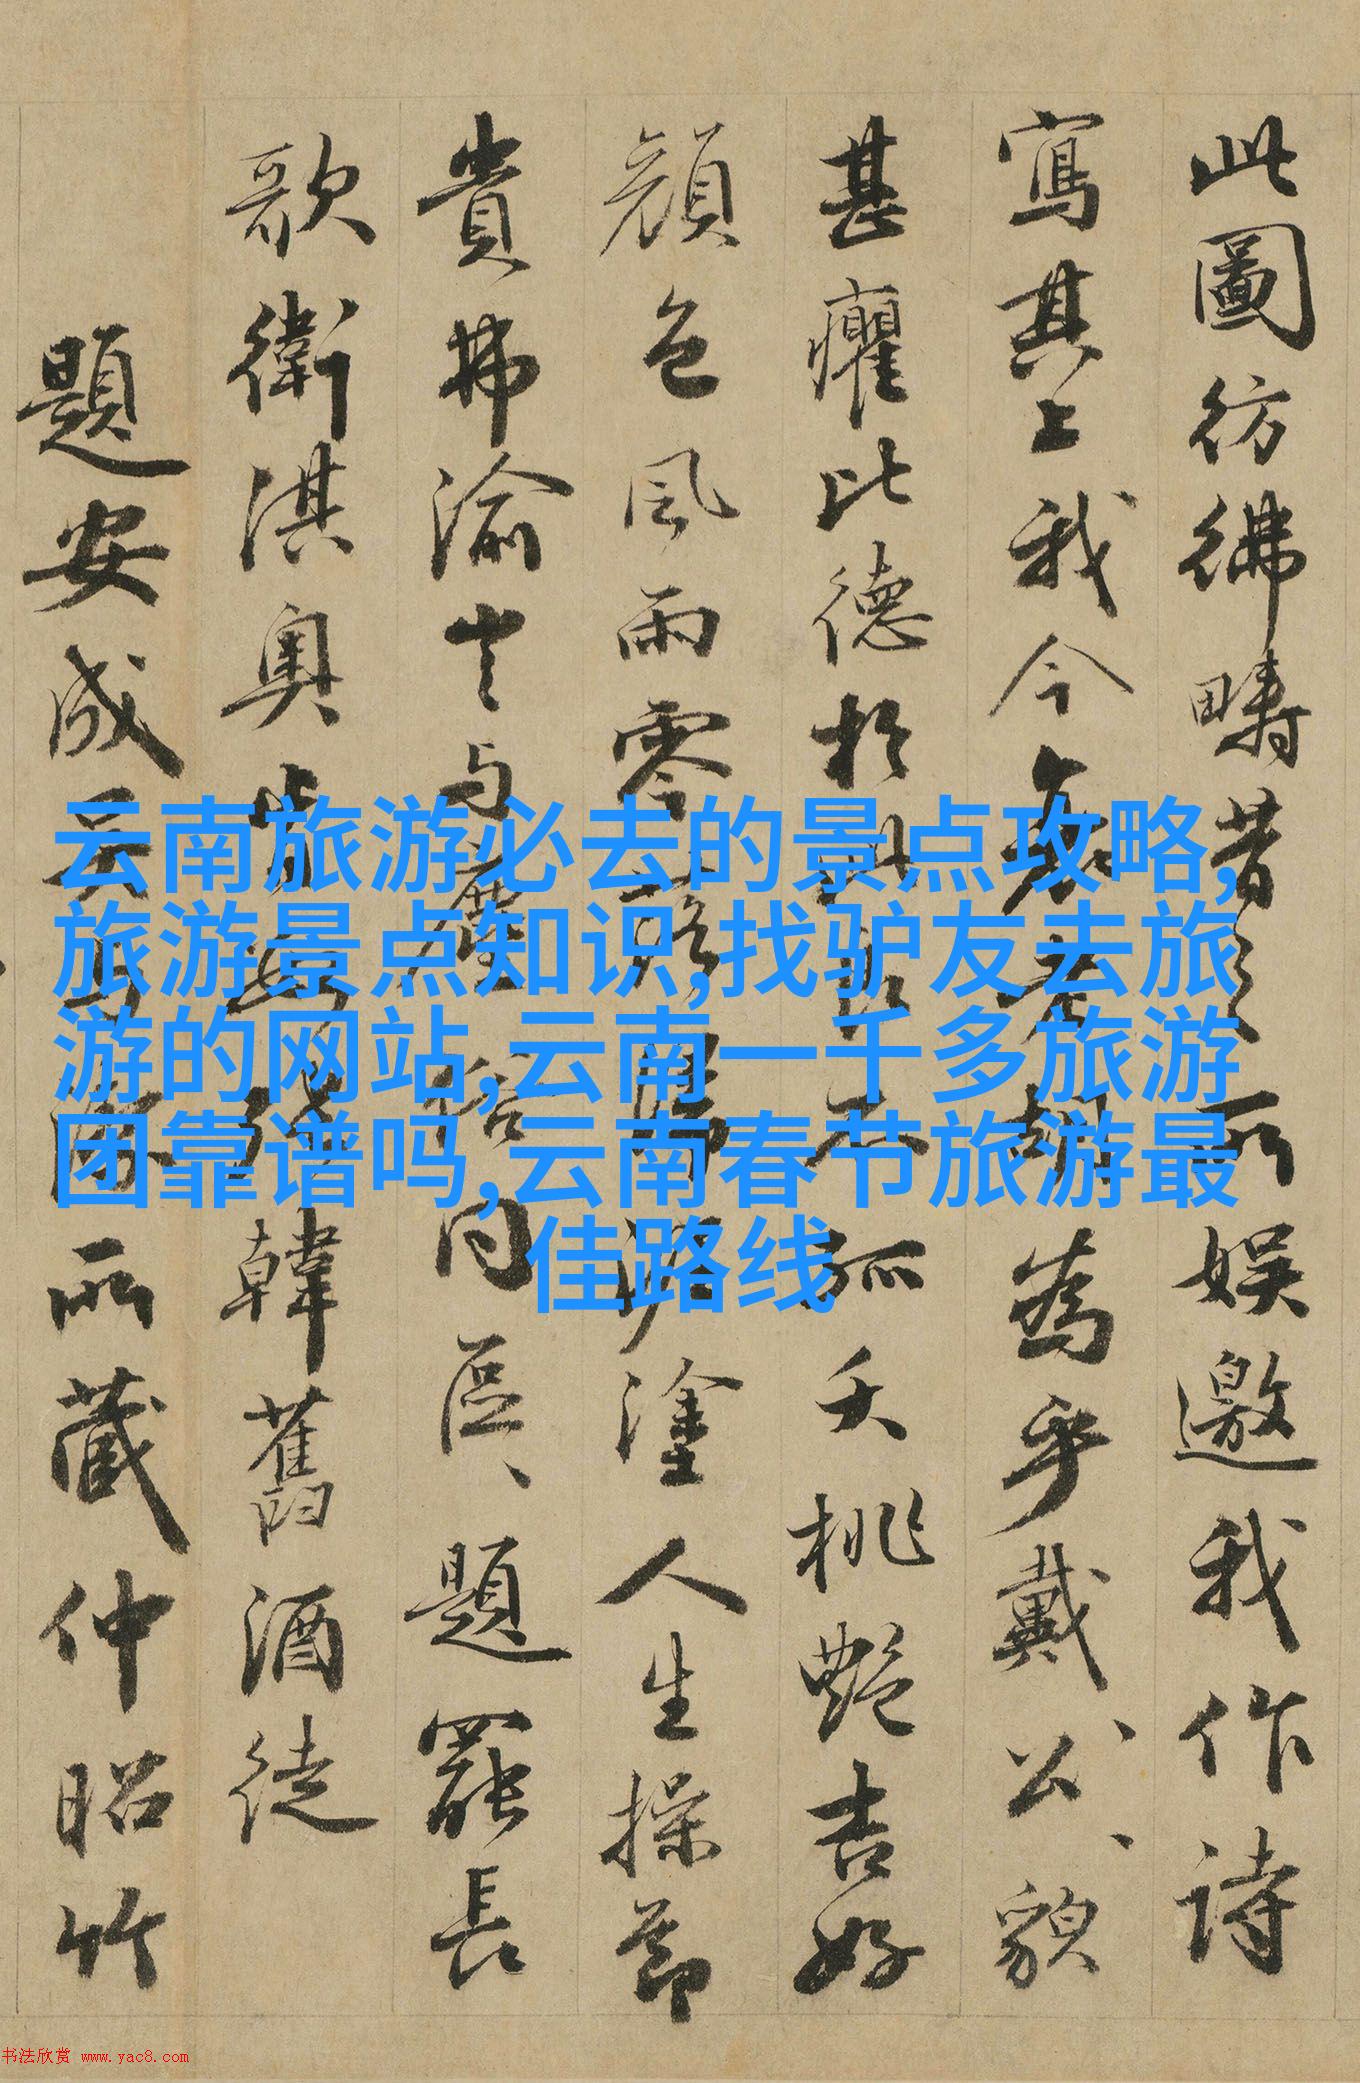 此圖彷彿疇昔
所娱邀我作诗
寫其上我今衰老
为乎戴公貌
甚癯比德於
孤夭桃艶吉好
顔色風雨零
塗人生操節
貴弗渝
同區题罷長
歌衛淇奥
韓舊酒徒
题安成
所藏仲昭竹
云南旅游必去的景点攻略,
旅游景点知识,找驴友去旅
游的网站,云南一千多旅游
团靠谱吗,云南春节旅游最
佳路线
书法欣赏 www.yac8.com